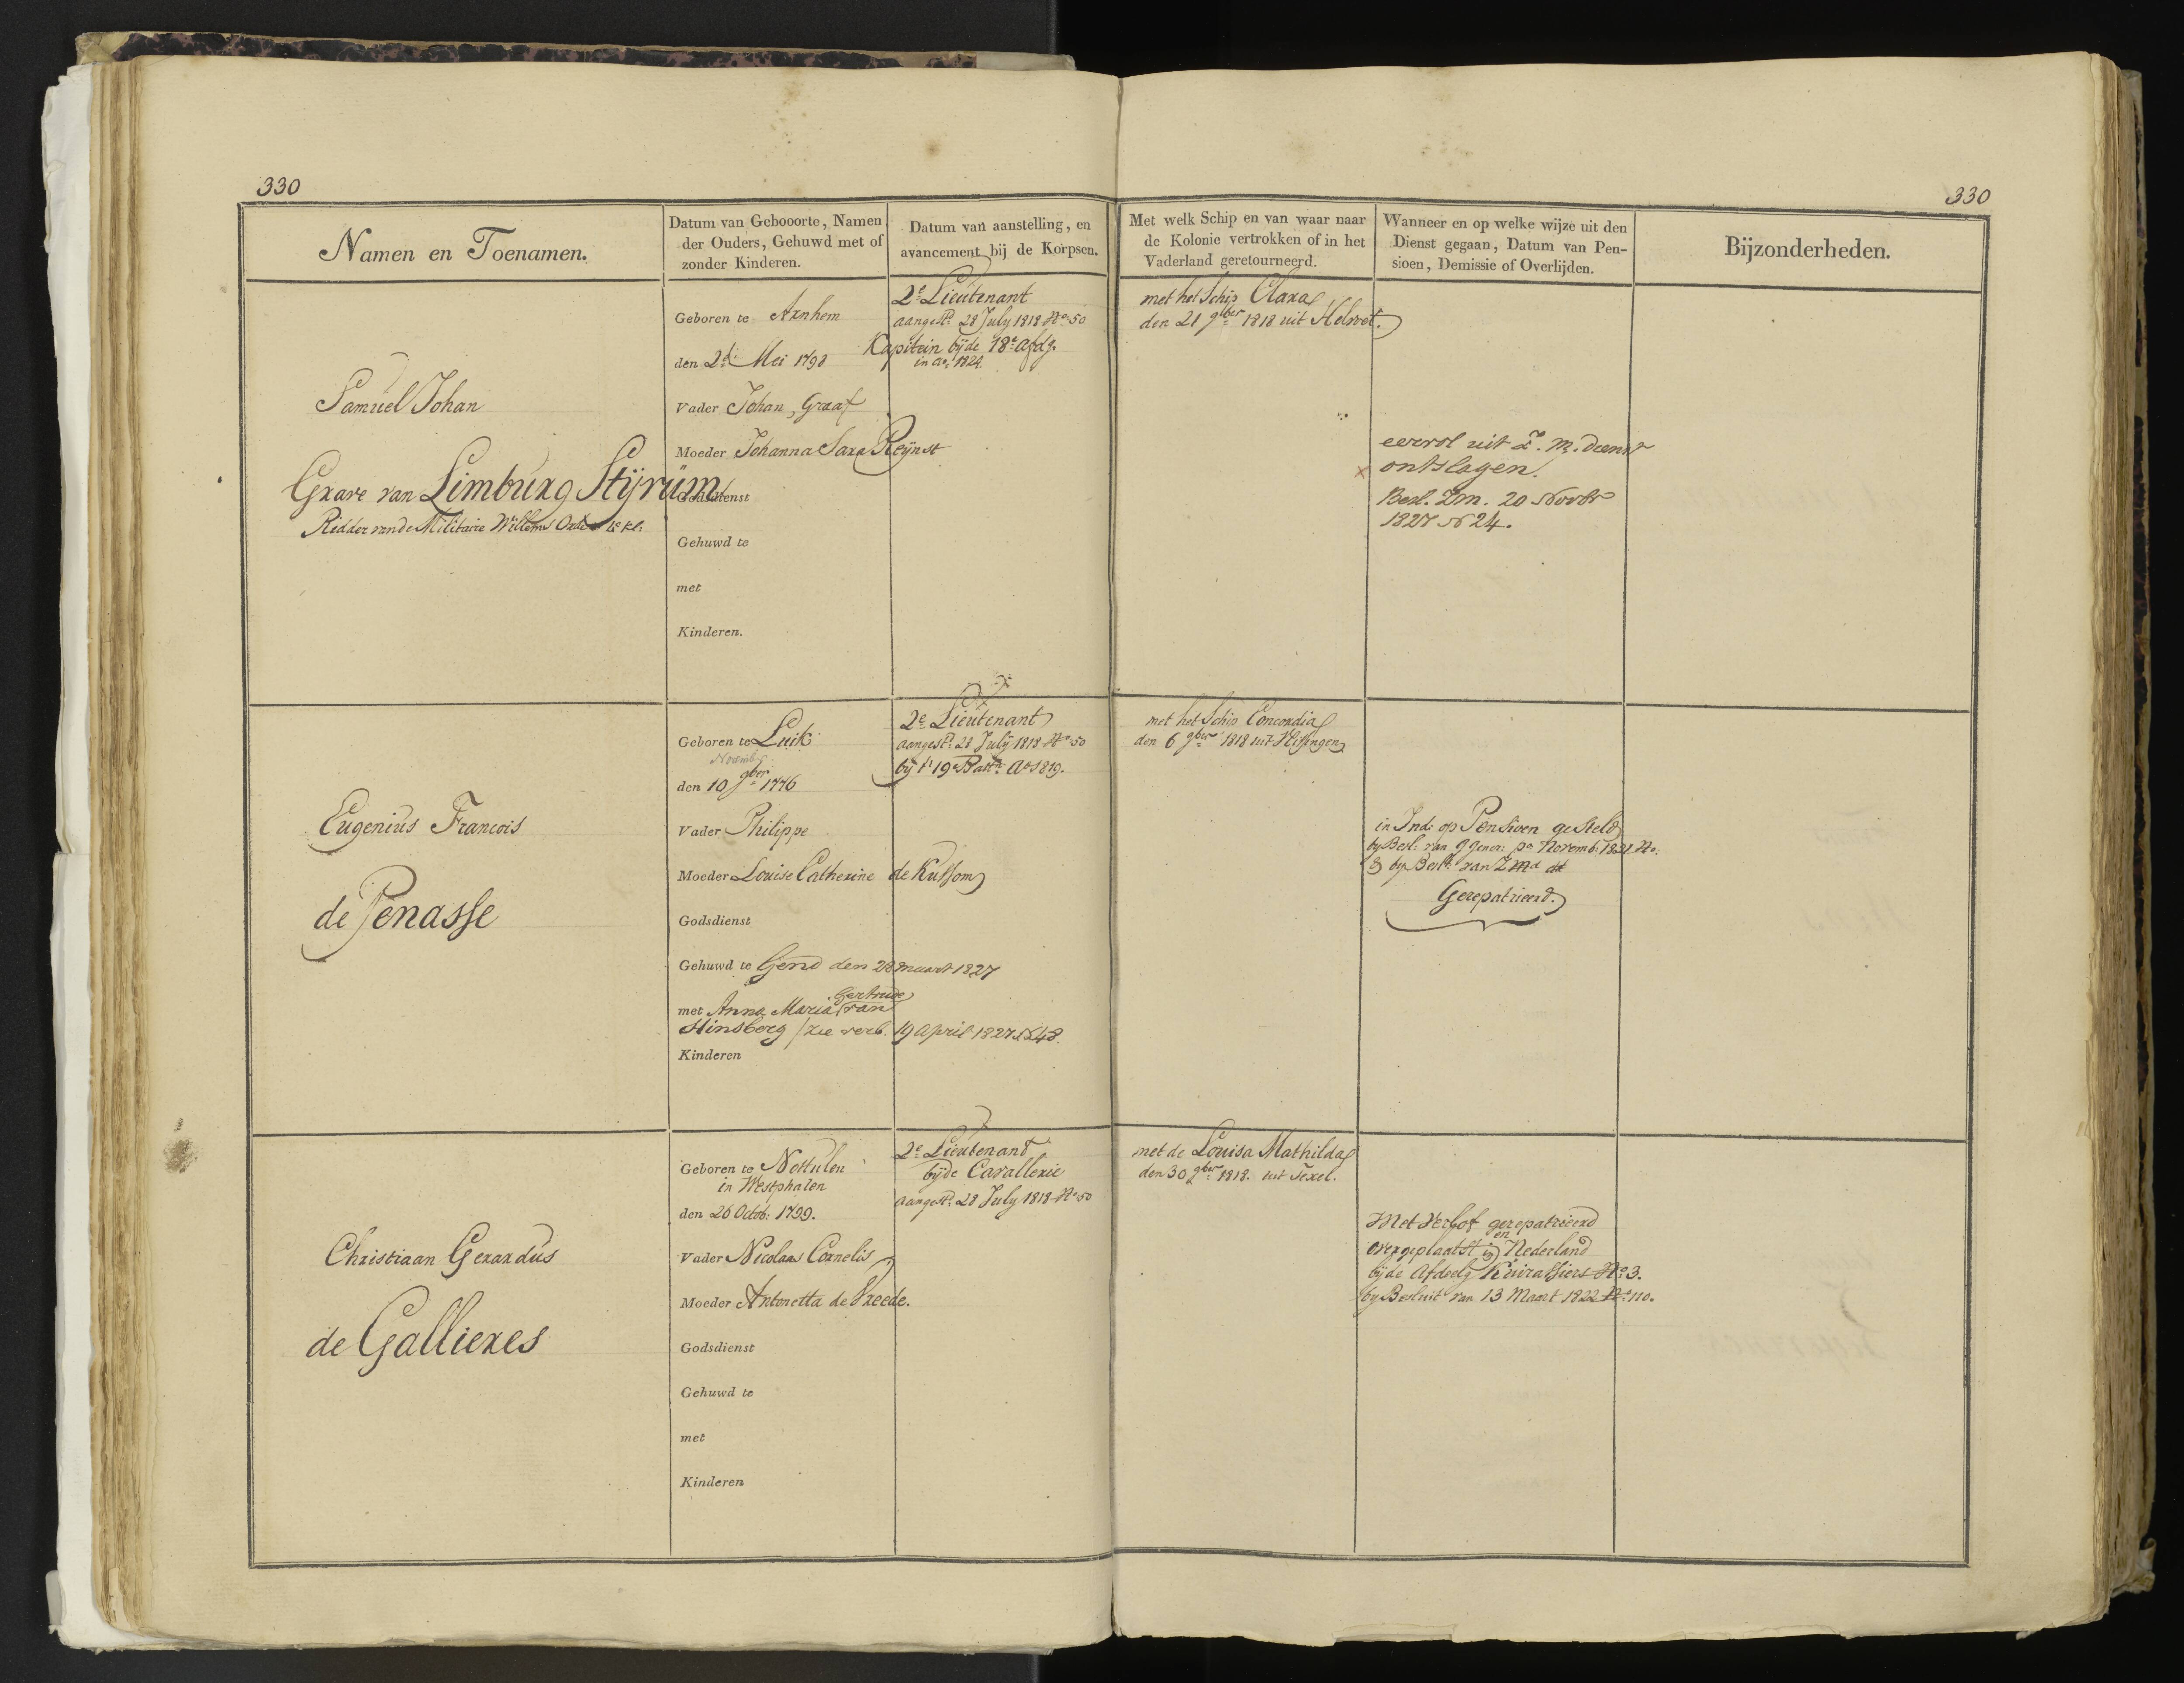 330
330
Namen en Toenamen.
Datum van Gebooorte, Namen
der Ouders, Gehuwd met of
zonder Kinderen.
Datum van aanstelling, en
avancement bij de Korpsen.
Met welk Schip en van waar naar
de Kolonie vertrokken of in het
Vaderland geretourneerd.
Wanneer en op welke wijze uit den
Dienst gegaan, Datum van Pen-
sioen, Demissie of Overlijden.
Bijzonderheden.
Samuel Johan
Grave van Limburg Stijrum
Ridder van de Militaire Willems Orde 4e Kl:
Geboren te Arnhem
den 2d: Mei 1798
Vader Johan, Graaf
Moeder Johanna Sara Reijnst
Godsdienst
Gehuwd te
met
Kinderen.
2e Lieutenant
aangestd. 28 July 1818 No. 50
Kapitein bijde 18e afdg.
in ao. 1824.
met het Schip Clara
den 21 9ber 1818 uit Helvoet.
eervol uit Z. M. dienst
ontslagen.
Besl. ZM. 20 Novbr
1827 No 24.
Eugenius Francois
de Penasse
Geboren te Luik
Novemb:
den 10 9ber 1776
Vader Philippe
Moeder Louise Catherine de Kussom
Godsdienst
Gehuwd te Gend den 28 maart 1827
Gertrude
met Anna Maria van
Hinsberg / zie verb. 19 april 1827 No 48.
Kinderen
2e Lieutenant
aangestd. 28 July 1818 No 50
bij 't 19e Batt. Ao 1819.
met het Schip Concordia
den 6 9ber 1818 uit Vlissingen
in Ind: op Pensioen gesteld
by Besl: van G Gener: po Novemb: 1821 No.
& by Beslt: van ZMd dd
Gerepatrieerd.
Christiaan Gerardus
de Gallieres
Geboren te Nottulen
in Westphalen
den 26 Octob: 1799.
Vader Nicolaas Cornelis
Moeder Antonetta de Vreede.
Godsdienst
Gehuwd te
met
Kinderen
2e Lieutenant
bijde Cavallerie
aangestd. 28 July 1818 No 50
met de Louisa Mathilda
den 30 9ber 1818. uit Texel.
Met Verlof gerepatrieerd
en
overgeplaatst in Nederland
bijde Afdeelg Kuirassiers No. 3.
by Besluit van 13 Maart 1822 No 110.